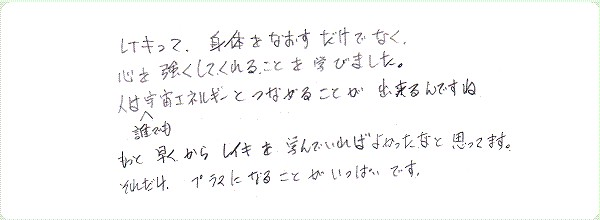 レイキって、身体をなおすだけでなく、
心を強くしてくれることを学びました。
人は宇宙エネルギーとつながることが出来るんですね
誰でも
もっと早くからレイキを学んでいればよかったなと思ってます。
それだけ、プラスになることがいっぱいです。